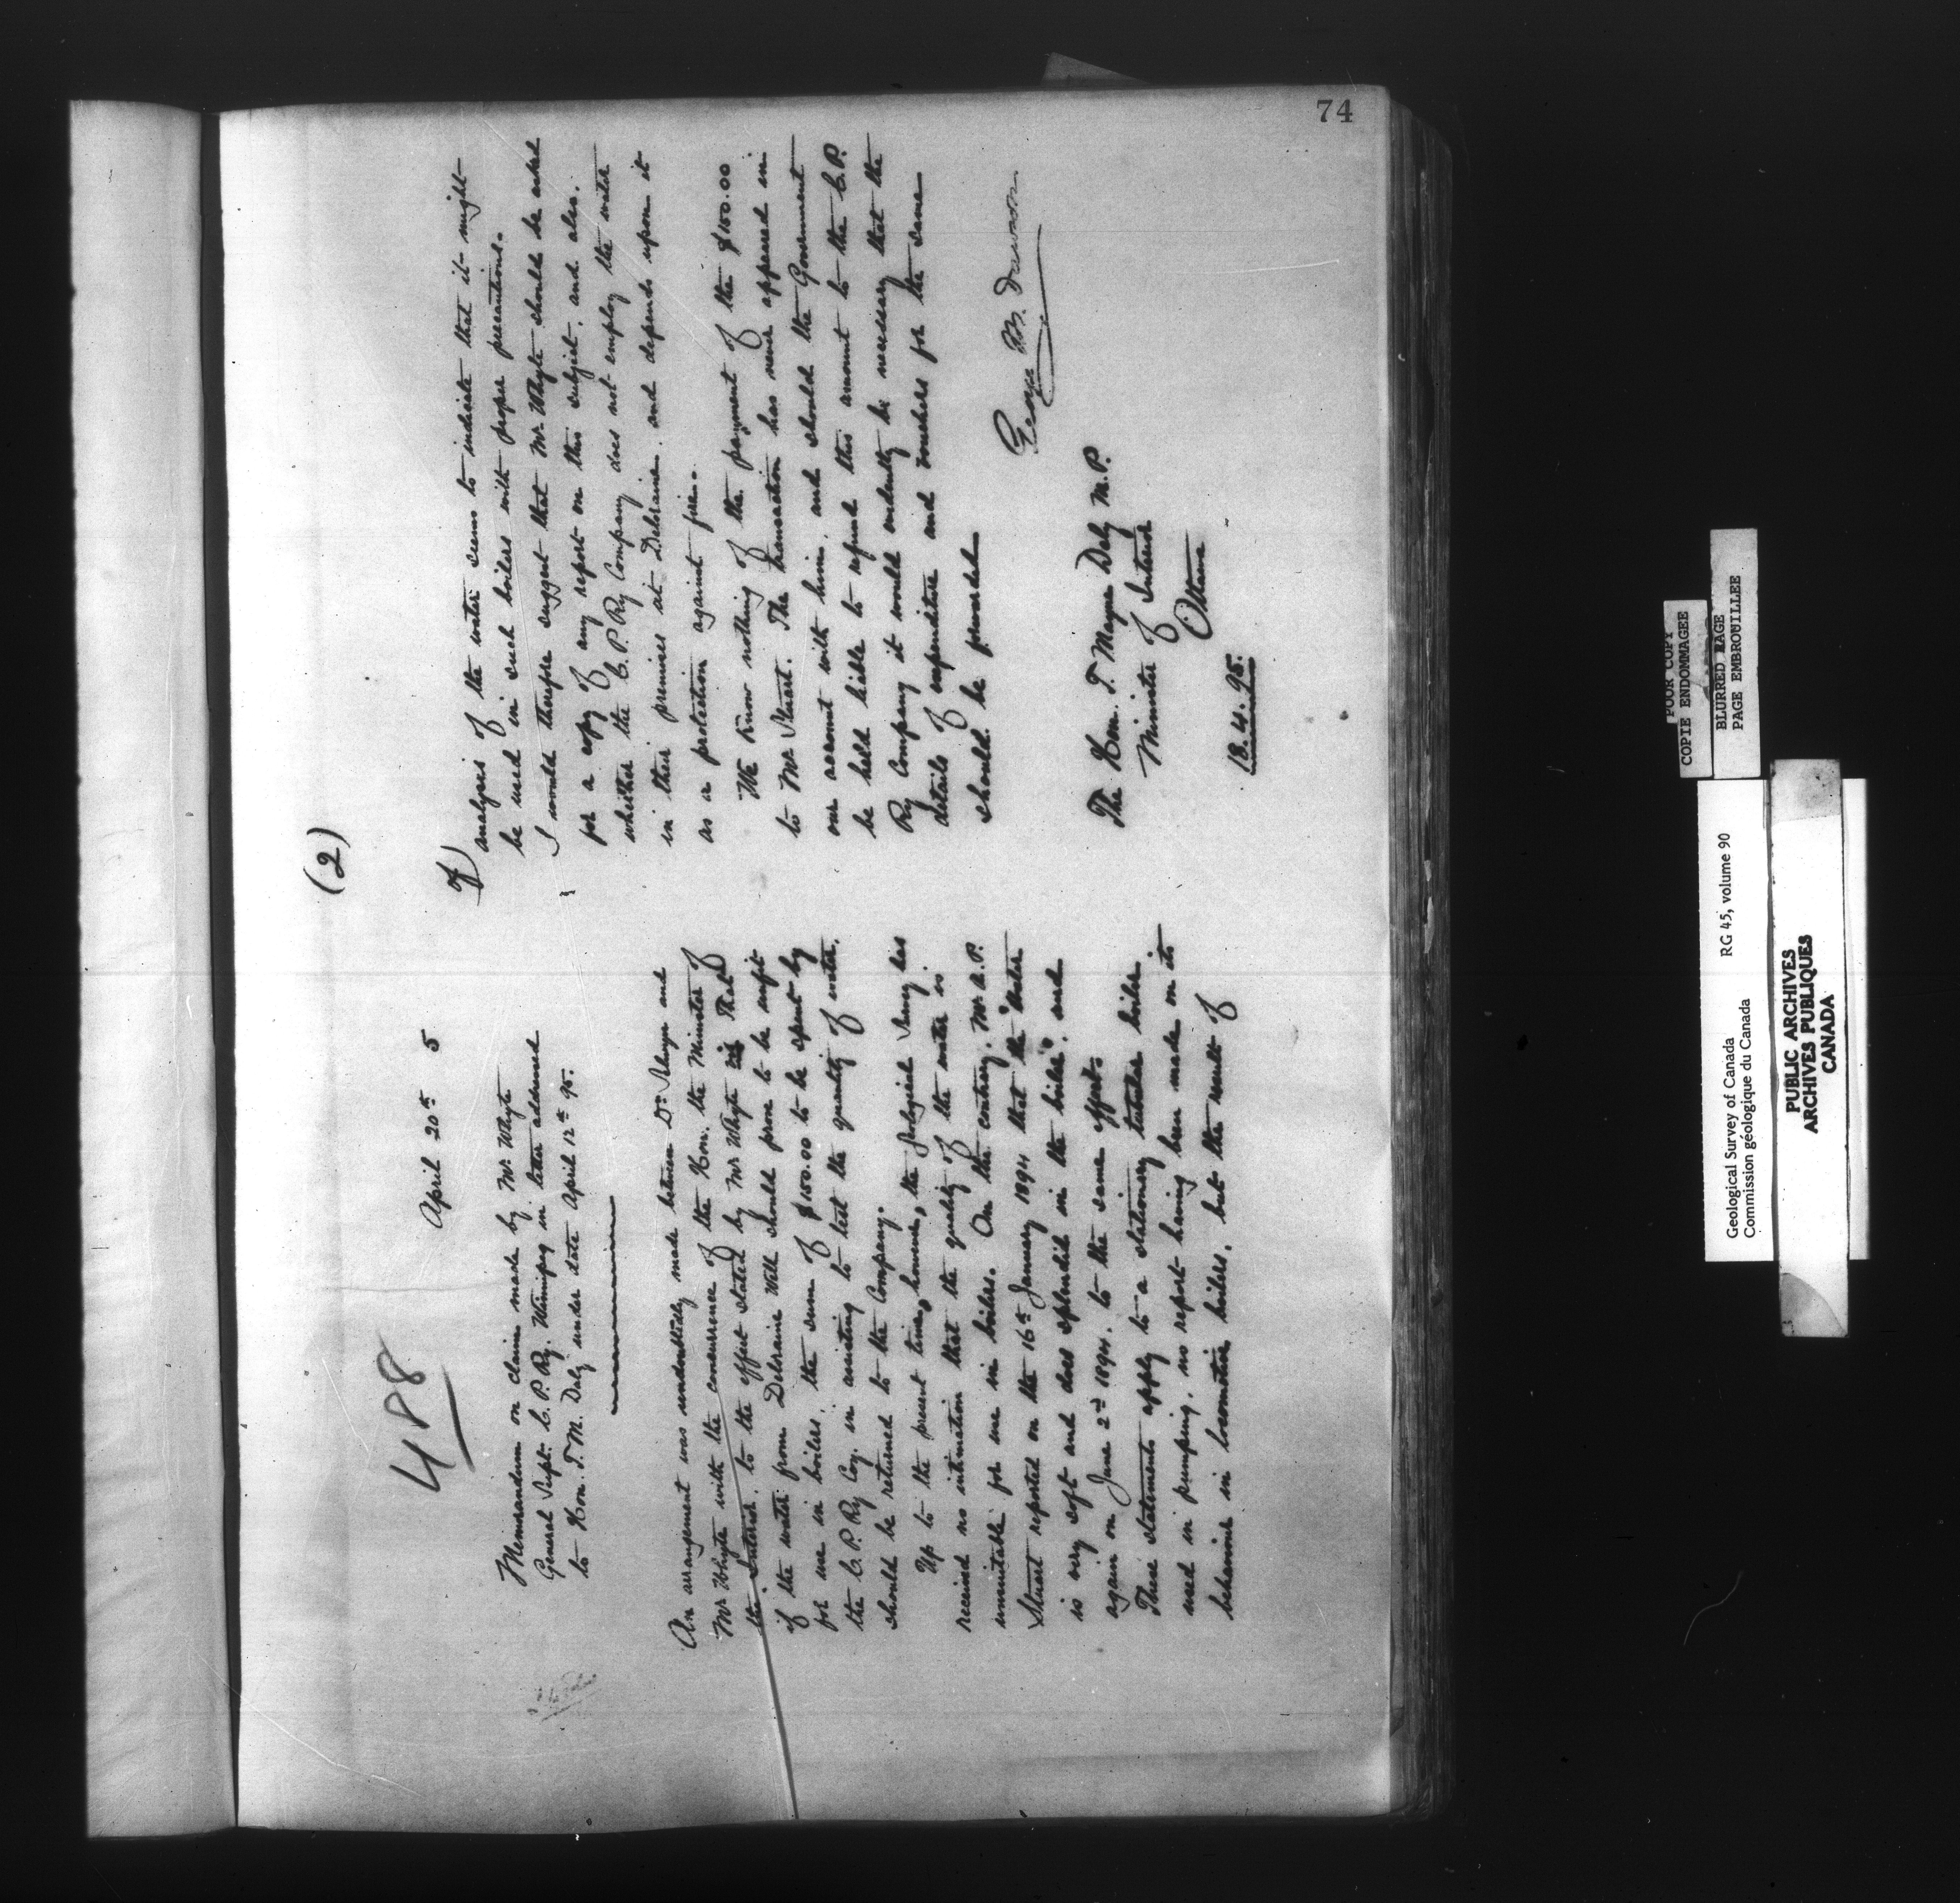 74
488
April 20th 5
Memorandum on claim made by Mr Whyte
General Supt. C. P. Ry. Winnipeg in letter addressed
to Hon. T. M. Daly under date April 12th 95.
An arrangement was undoubtedly made between Dr Selwyn and
Mr Whyte with the concurrence of the Hon. the Minister of
the Interior, to the effect stated by Mr Whyte viz That
if the water from Deloraine Well should prove to be unfit
for use in boilers, the sum of $100.00 to be spent by
the C. P. Ry Coy. in assisting to test the quality of water,
should be returned to the Company.
Up to the present time, however, the Geological Survey has
received no intimation that the quality of the water is
unsuitable for use in boilers. On the contrary, Mr A. P.
Stuart reported on the 16th January 1894 that the "water
is very soft and does splendid in the boiler", and
again on June 2nd 1894, to the same effect.
These statements apply to a stationary tubular boiler
used in pumping, no report having been made on its
behaviour in locomotive boilers, but the result of
(2)
of)
analysis of the water seems to indicate that it might
be used in such boilers with proper precautions.
I would therefore suggest that Mr Whyte should be asked
for a copy of any report on this subject, and also,
whether the C. P. Ry Company does not employ the water
in their premises at Deloraine, and depends upon it
as a protection against fire.
We Know nothing of the payment of the $100.00
to Mr Stuart. The transaction has never appeared in
our account with him, and should the Government
be held liable to refund this amount to the C. P.
Ry Company it would evidently be necessary that the
details of expenditure and vouchers for the same
should be furnished
George M. Dawson
The Hon. T. Mayne Daly M.P.
Minister of Interior
Ottawa
18.4.95.
POOR COPY
COPIE ENDOMMAGEE
BLURRED PAGE
PAGE EMBROUILLEE
Geological Survey of Canada RG 45, volume 90
Commission géologique du Canada
PUBLIC ARCHIVES
ARCHIVES PUBLIQUES
CANADA